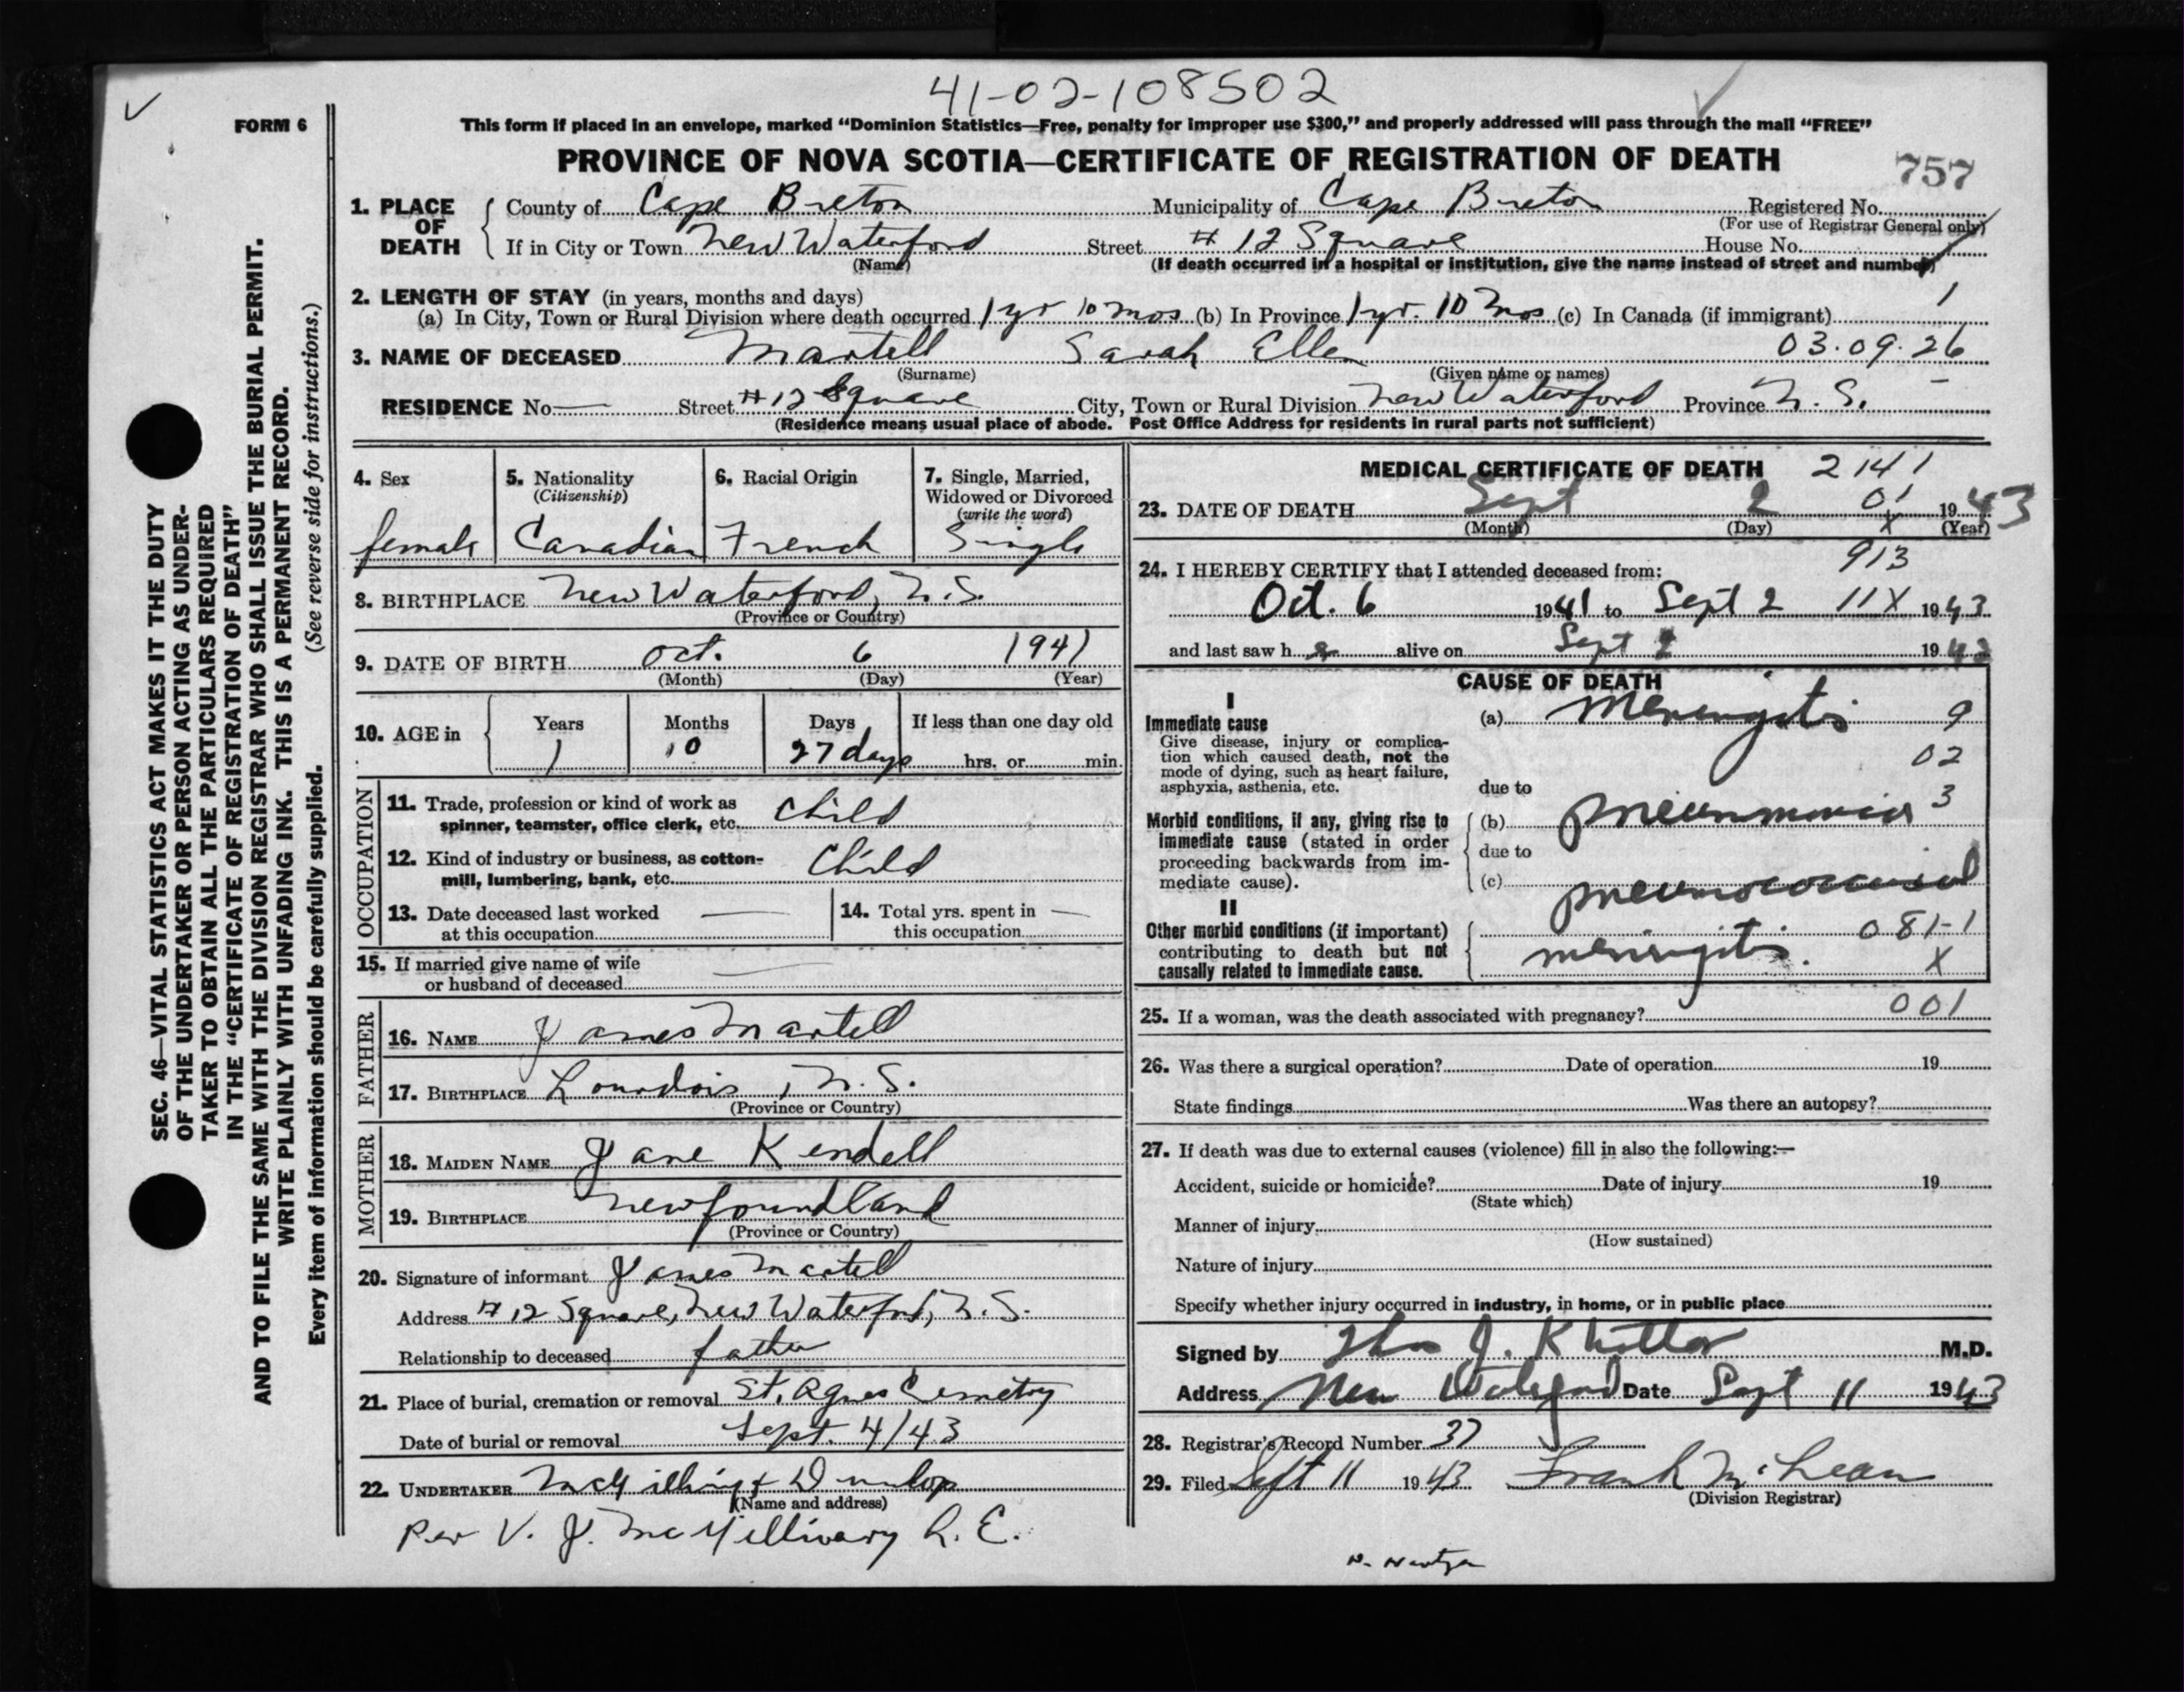 41-02-108502
FORM 6
This form if placed in an envelope, marked “Dominion Statistics—Free, penalty for improper use $300,” and properly addressed will pass through the mail “FREE”
PROVINCE OF NOVA SCOTIA—CERTIFICATE OF REGISTRATION OF DEATH
757
1. PLACE OF DEATH
County of Cape Breton Municipality of Cape Breton Registered No.
(For use of Registrar General only)
If in City or Town New Waterford Street # 12 Square House No.
(Name) (If death occurred in a hospital or institution, give the name instead of street and number)
2. LENGTH OF STAY (in years, months and days) 1
(a) In City, Town or Rural Division where death occurred 1 yr 10 mos (b) In Province 1 yr. 10 mos (c) In Canada (if immigrant)
3. NAME OF DECEASED Martell Sarah Ellen 03.09.26
(Surname) (Given name or names)
RESIDENCE No. — Street # 12 Square City, Town or Rural Division New Waterford Province N. S.
(Residence means usual place of abode. Post Office Address for residents in rural parts not sufficient)
4. Sex
female
5. Nationality
(Citizenship)
Canadian
6. Racial Origin
French
7. Single, Married,
Widowed or Divorced
(write the word)
Single
8. BIRTHPLACE New Waterford, N.S.
(Province or Country)
9. DATE OF BIRTH Oct. 6 1941
(Month) (Day) (Year)
10. AGE in
Years Months Days If less than one day old
1 10 27 days hrs. or min.
OCCUPATION
11. Trade, profession or kind of work as
spinner, teamster, office clerk, etc. Child
12. Kind of industry or business, as cotton-
mill, lumbering, bank, etc. Child
13. Date deceased last worked —
at this occupation
14. Total yrs. spent in —
this occupation
15. If married give name of wife
or husband of deceased —
FATHER
16. NAME James Martell
17. BIRTHPLACE N. S.
(Province or Country)
MOTHER
18. MAIDEN NAME Jane Kendell
19. BIRTHPLACE Newfoundland
(Province or Country)
20. Signature of informant James Martell
Address # 12 Square, New Waterford, N. S.
Relationship to deceased father
21. Place of burial, cremation or removal St. Agnes Cemetry
Date of burial or removal Sept. 4/43
22. UNDERTAKER & Dunlop
(Name and address)
Per V. J.
MEDICAL CERTIFICATE OF DEATH 2141
23. DATE OF DEATH Sept 2 01 1943
(Month) (Day) X (Year)
913
24. I HEREBY CERTIFY that I attended deceased from:
Oct. 6 1941 to Sept 2 11X 1943
and last saw h alive on Sept 2 1943
CAUSE OF DEATH
I
Immediate cause
Give disease, injury or complica-
tion which caused death, not the
mode of dying, such as heart failure,
asphyxia, asthenia, etc.
(a) Meningitis 9
02
due to
Morbid conditions, if any, giving rise to
immediate cause (stated in order
proceeding backwards from im-
mediate cause).
(b) pneumonia 3
due to
(c) pneumococcal
II
Other morbid conditions (if important)
contributing to death but not
causally related to immediate cause.
081-1
meningitis. X
25. If a woman, was the death associated with pregnancy? 001
26. Was there a surgical operation? Date of operation 19
State findings Was there an autopsy?
27. If death was due to external causes (violence) fill in also the following:—
Accident, suicide or homicide? Date of injury 19
(State which)
Manner of injury
(How sustained)
Nature of injury
Specify whether injury occurred in industry, in home, or in public place
Signed by J. M.D.
Address New Waterford Date Sept 11 1943
28. Registrar's Record Number 37
29. Filed Sept 11 1943 Frank McLean
(Division Registrar)
SEC. 46—VITAL STATISTICS ACT MAKES IT THE DUTY
OF THE UNDERTAKER OR PERSON ACTING AS UNDER-
TAKER TO OBTAIN ALL THE PARTICULARS REQUIRED
IN THE “CERTIFICATE OF REGISTRATION OF DEATH”
AND TO FILE THE SAME WITH THE DIVISION REGISTRAR WHO SHALL ISSUE THE BURIAL PERMIT.
WRITE PLAINLY WITH UNFADING INK. THIS IS A PERMANENT RECORD.
Every item of information should be carefully supplied. (See reverse side for instructions.)